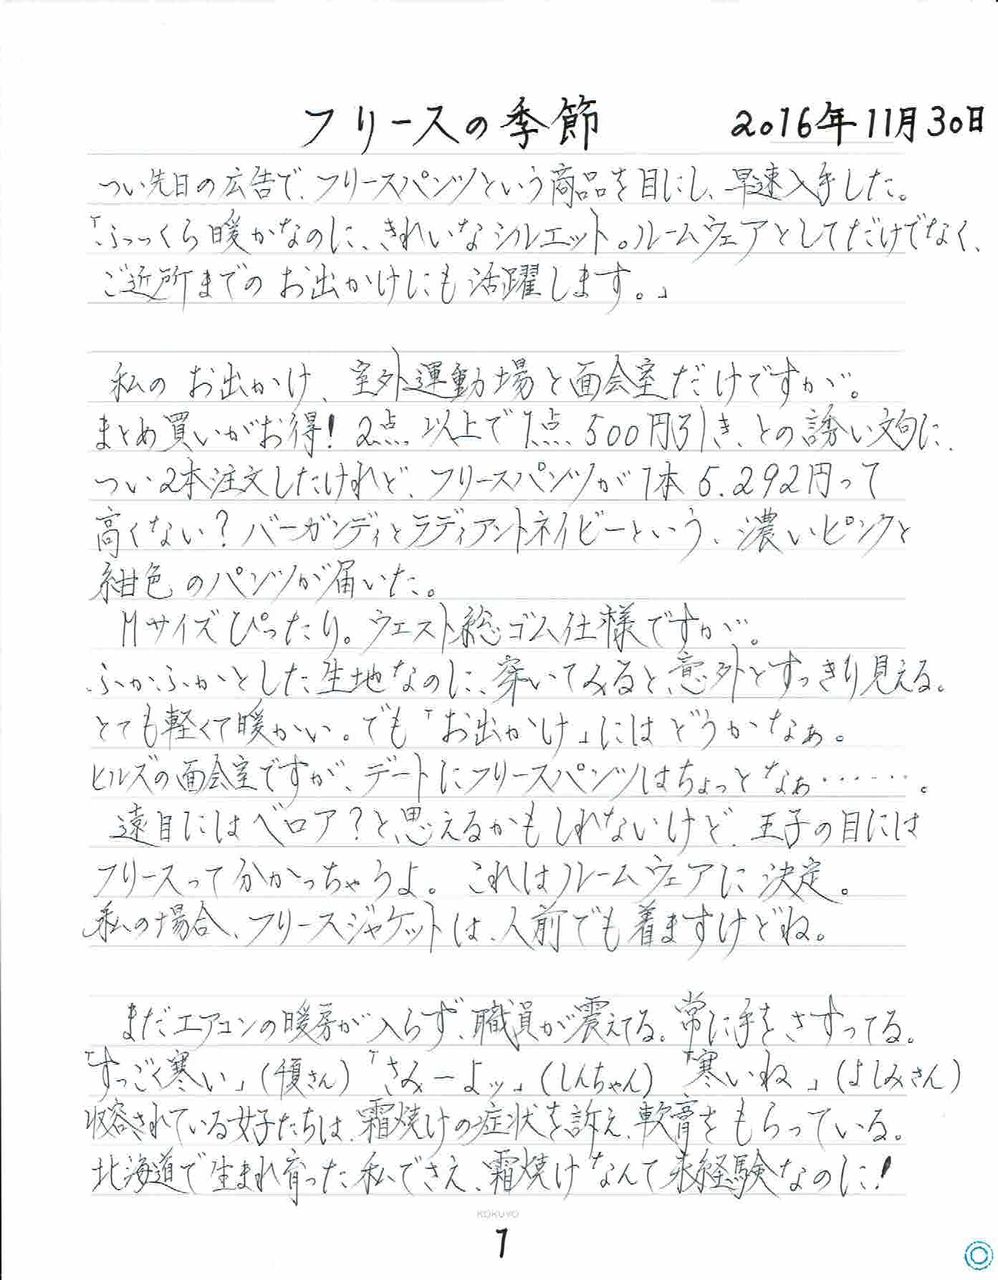 フリースの季節
2016年11月30日
つい先日の広告で、フリースパンツという商品を目にし、早速入手した。
「ふっくら暖かなのに、きれいなシルエット。ルームウェアとしてだけでなく、
ご近所までのお出かけにも活躍します。」
私のお出かけ、室外運動場と面会室だけですが。
まとめ買いがお得!2点以上で1点500円引き、との誘い文句に、
つい2本注文したけれど、フリースパンツが1本5.292円って
高くない?バーガンディとラディアントネイビーという、濃いピンクと
紺色のパンツが届いた。
Mサイズぴったり。ウエスト総ゴム仕様ですが。
ふかふかとした生地なのに、穿いてみると、意外とすっきり見える。
とても軽くて暖かい。でも「お出かけ」にはどうかなぁ。
ヒルズの面会室ですが、デートにフリースパンツはちょっとなぁ……。
遠目にはベロア?と、思えるかもしれないけど、王子の目には
フリースって分かっちゃうよ。これはルームウェアに決定。
私の場合、フリースジャケットは、人前でも着ますけどね。
まだエアコンの暖房が入らず、職員が震えてる。常に手をさすってる。
「すっごく寒い」(優さん)「さみーよッ」(しんちゃん)「寒いね」(よしみさん)
収容されている女子たちは、霜焼けの症状を訴え、軟膏をもらっている。
北海道で生まれ育った私でさえ、霜焼けなんて未経験なのに!
KOKUYO
1
©